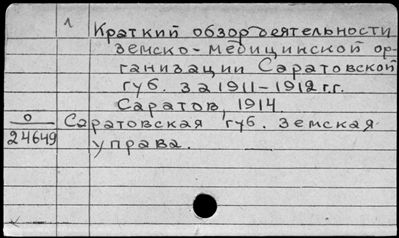 1
Краткий обзор деятельности
земско-медицинской ор-
ганизации Саратовской
губ. за 1911-1912 г.г.
Саратов, 1914.
0
24649
Саратовская губ. земская
управа.